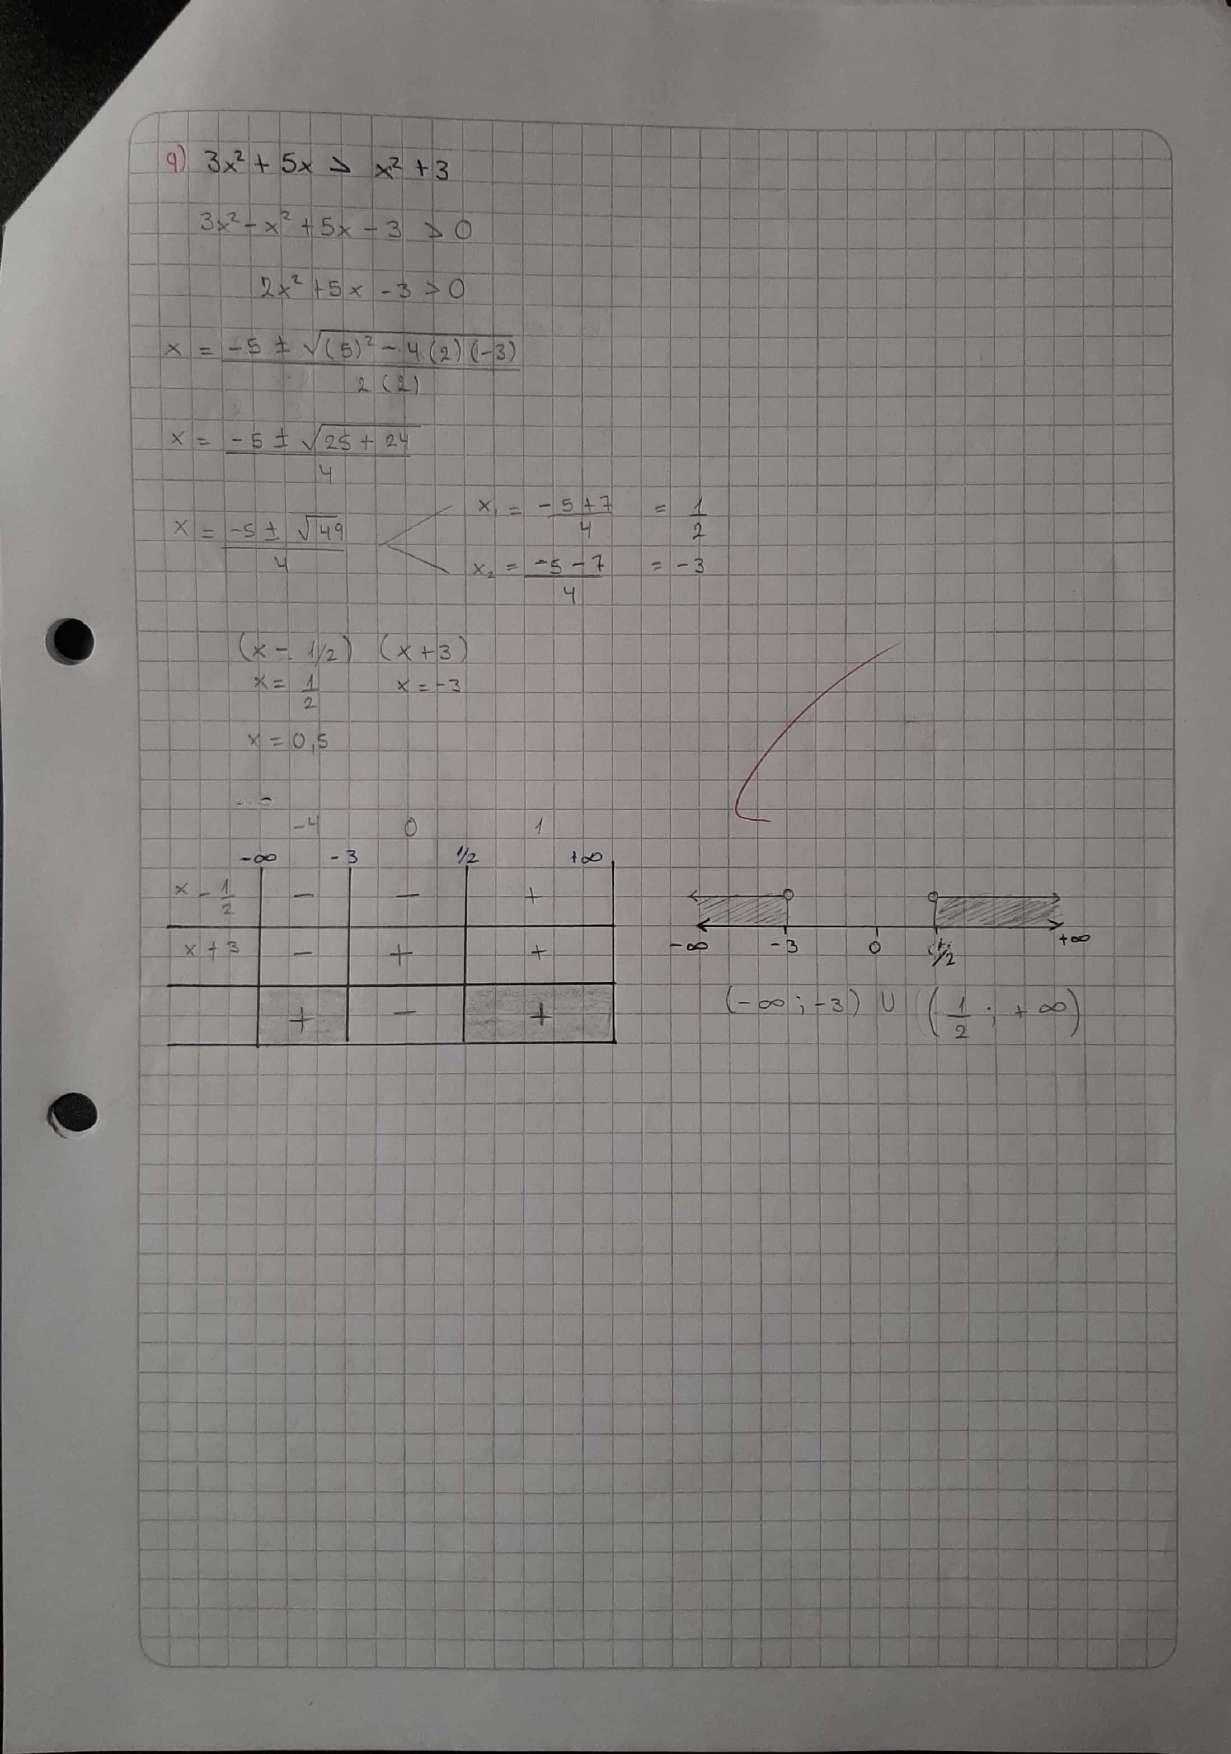 9) 3x² + 5x > x² + 3
3x² - x² + 5x - 3 > 0
2x² + 5x - 3 > 0
x = (-5 ± √((5)² - 4(2)(-3))) / 2(2)
x = (-5 ± √(25 + 24)) / 4
x = (-5 ± √49) / 4
x₁ = (-5 + 7) / 4 = 1/2
x₂ = (-5 - 7) / 4 = -3
(x - 1/2) (x + 3)
x = 1/2 x = -3
x = 0,5
-4 0 1
-∞ -3 1/2 +∞
x - 1/2 - - +
x + 3 - + +
+ - +
-∞ -3 0 1/2 +∞
(-∞ ; -3) ∪ (1/2 ; +∞)